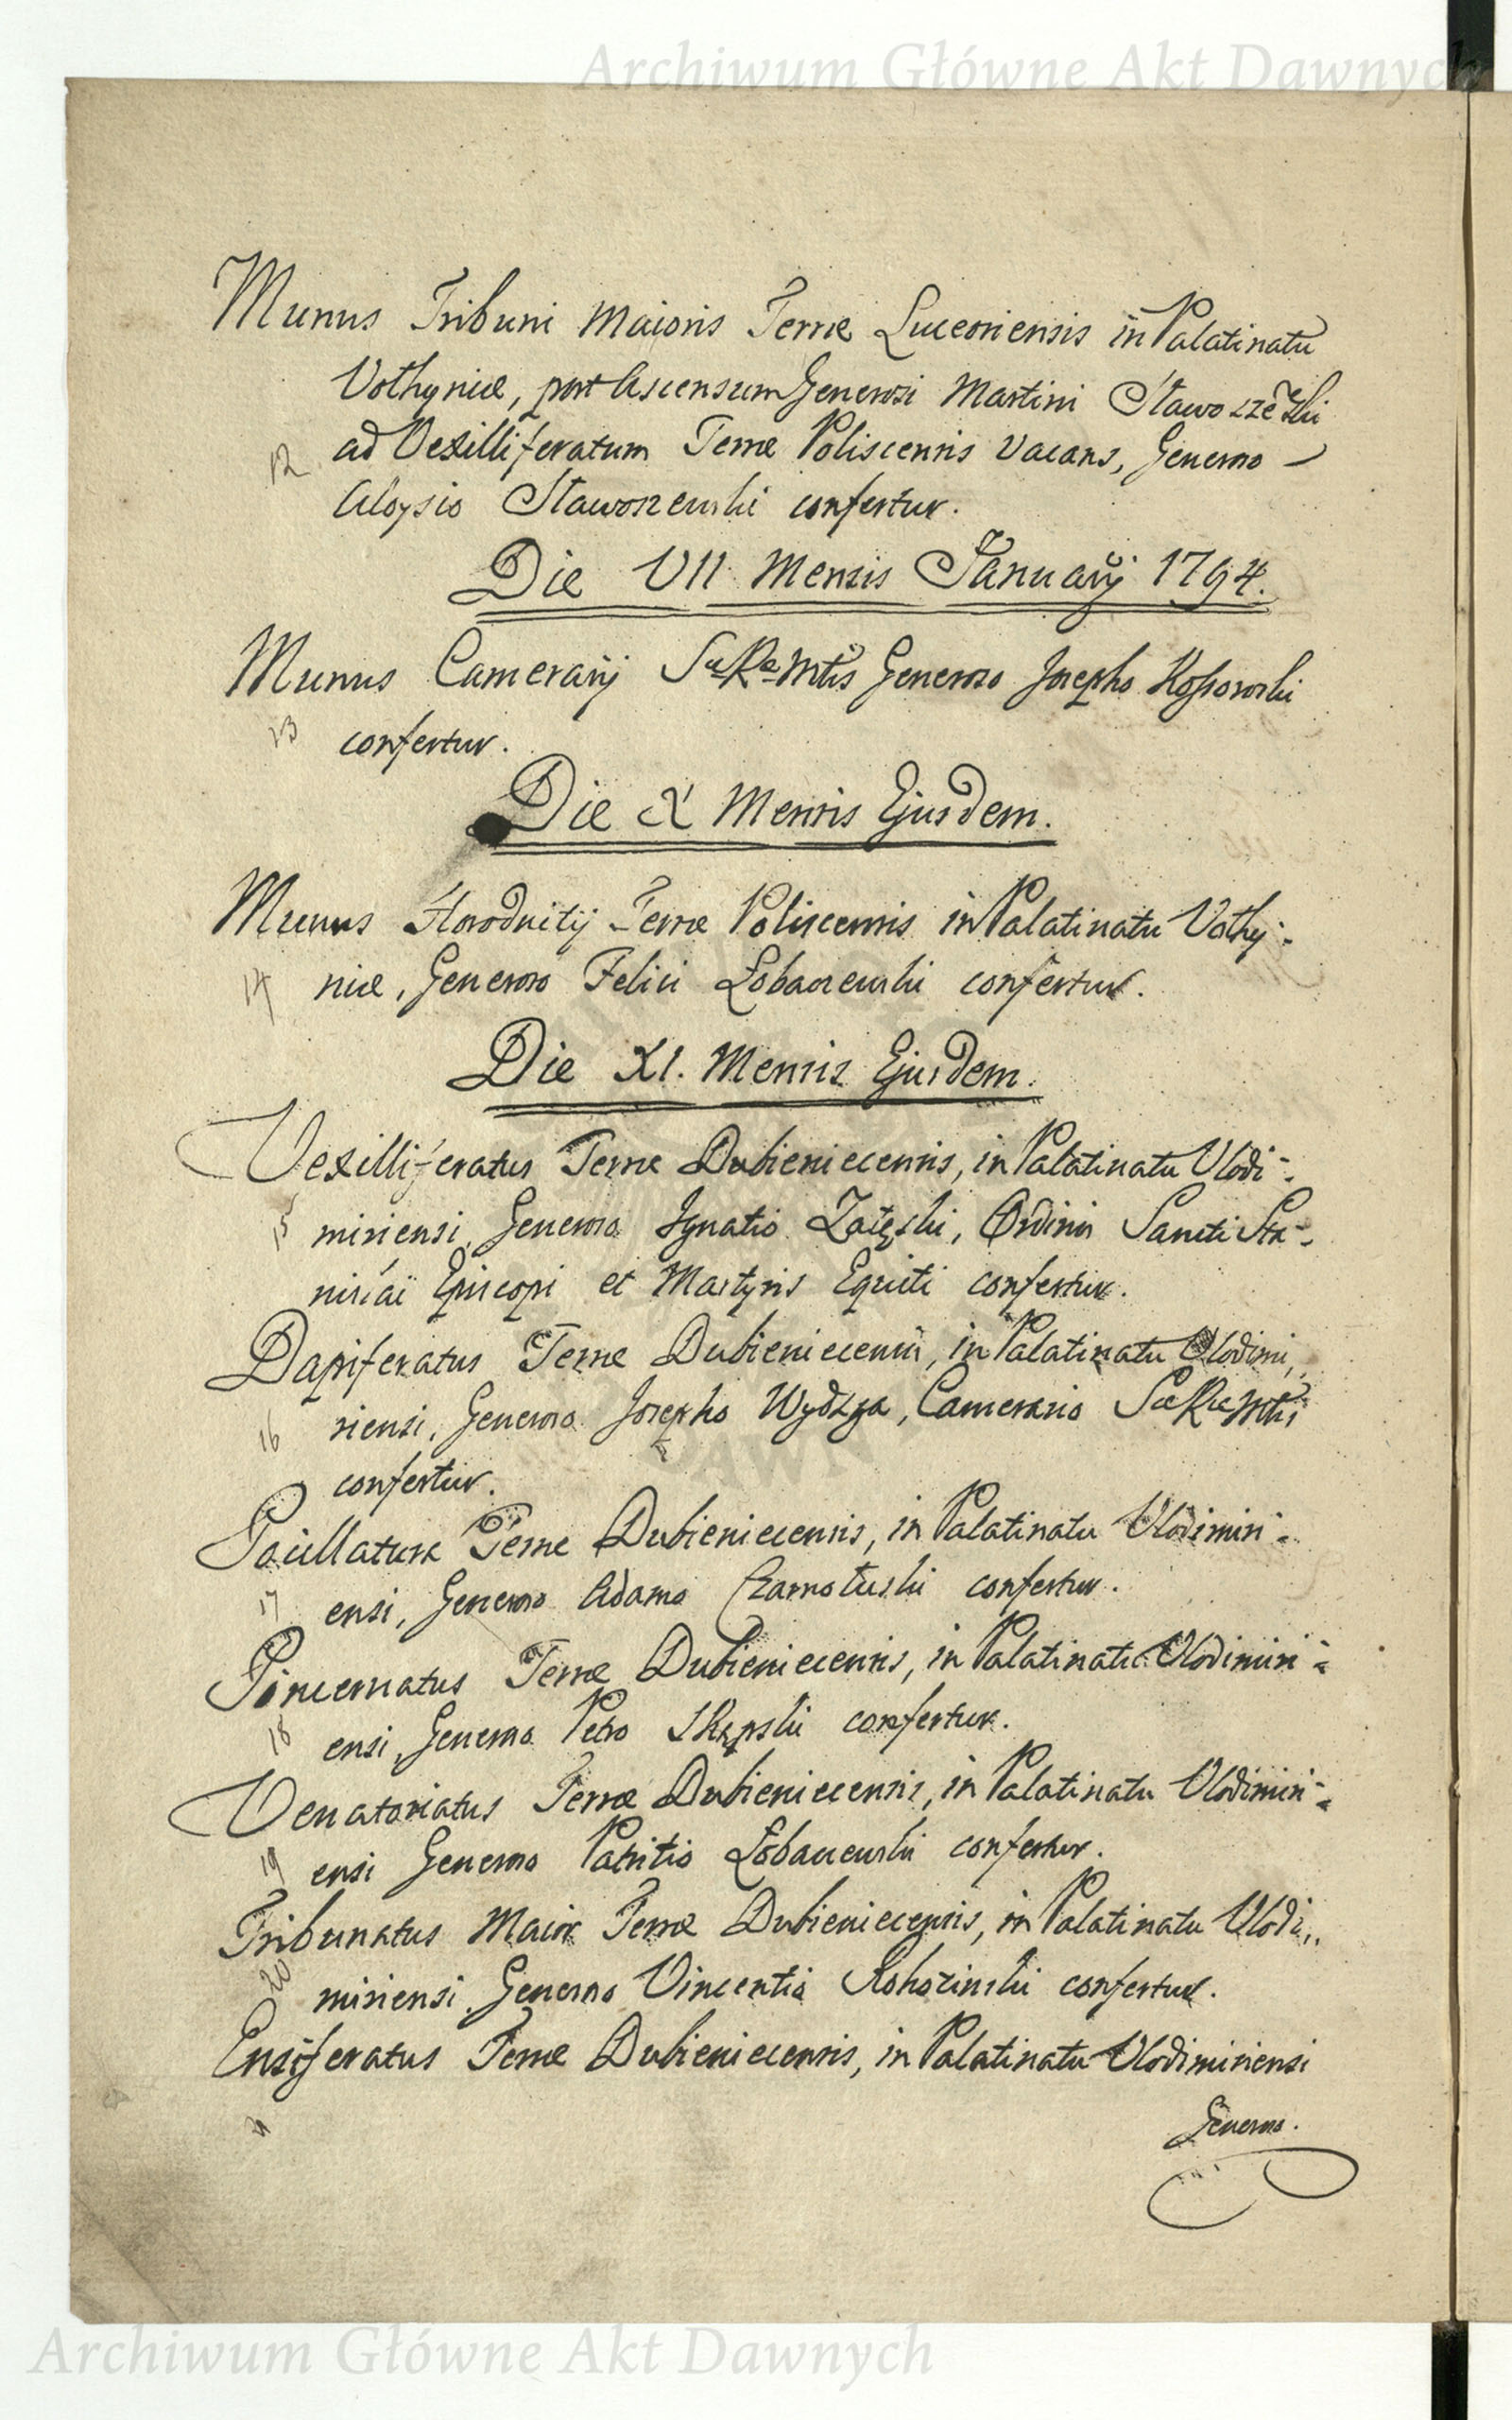 Archiwum Główne Akt Dawnych
Munus Tribuni Maioris Terræ Luceoriensis in Palatinatu
Volhyniæ, post Ascensum Generosi Martini Stawoszewski
12 ad Vexilliferatum Terræ Poliscensis vacans, Generoso
Aloysio Stawoszewski confertur.
Die VII Mensis Januarij 1794.
Munus Camerarij SæRæMtis Generoso Josepho Kossowski
13 confertur.
Die X Mensis Ejusdem.
Munus Horodnitij Terræ Poliscensis in Palatinatu Volhy-
14 niæ, Generoso Felici Łobaczewski confertur.
Die XI. Mensis Ejusdem.
Vexilliferatus Terræ Dubieniecensis, in Palatinatu Vlodi-
15 miriensi, Generoso Ignatio Załęski, Ordinis Sancti Sta-
nislai Episcopi et Martyris Equiti confertur.
Dapiferatus Terræ Dubieniecensis, in Palatinatu Vlodimi,,
16 riensi, Generoso Josepho Wydzga, Camerario SæRæMtis
confertur.
Pocillatura Terræ Dubieniecensis, in Palatinatu Vlodimiri-
17 ensi, Generoso Adamo Czarnołuski confertur.
Pincernatus Terræ Dubieniecensis, in Palatinatu Vlodimiri-
18 ensi, Generoso Petro confertur.
Venatoriatus Terræ Dubieniecensis, in Palatinatu Vlodimiri-
19 ensi Generoso Patritio Łobaczewski confertur.
Tribunatus Maior Terræ Dubieniecensis, in Palatinatu Vlodi,,
20 miriensi, Generoso Vincentio Rohozinski confertur.
Ensiferatus Terræ Dubieniecensis, in Palatinatu Vlodimiriensi
21 Generoso.
Archiwum Główne Akt Dawnych